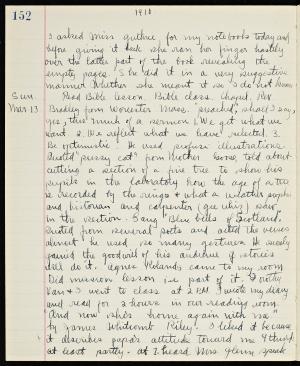 152
1910
I asked Miss Guthrie for my notebooks today and
before giving it back she ran her finger hastily
over the latter part of the book revealing the
empty pages. She did it in a very suggestive
manner. Whether she meant it so I do not know
Sun.
Mar. 13
Read Bible lesson. Bible class. Chapel. Rev.
from Worcester Mass. preached, shall I say,
yes, this much of a sermon, 1. We get what we
want. 2. We reflect what we have selected. 3.
Be optimistic. He used profuse illustrations.
Quoted "pussy cat" from Mother Goose, told about
cutting a section of a pine tree to show his
pupils in the laboratory how the age of a tree
is recorded by the rings + what a
and historian and carpenter saw
in the section. Sang "Blue bells of Scotland,"
quoted from several poets and acted the verses
almost he used so many gestures. He surely
gained the goodwill of his audience if stories
will do it. Agnes came to my room
Did mission lesson i.e. part of it. Dorothy
and I went to class at 2 P.M. I wrote my diary
and read for 2 hours in our reading room
"And now she's home again with me"
by James Whitcomb Riley. I liked it because
it describes papa's attitude toward me I thought
at least partly. at I heard Mrs. Glenn speak